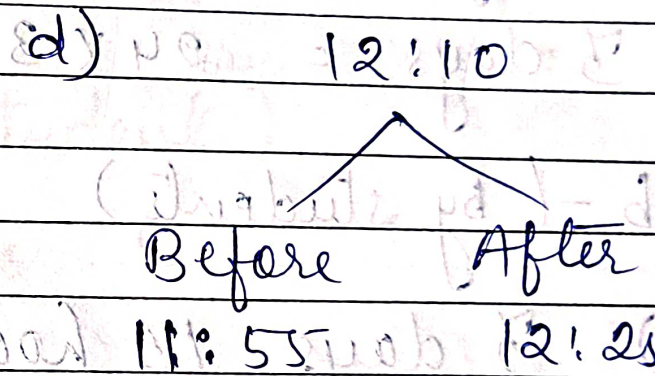 d) 12:10
Before After
11:55 12:25